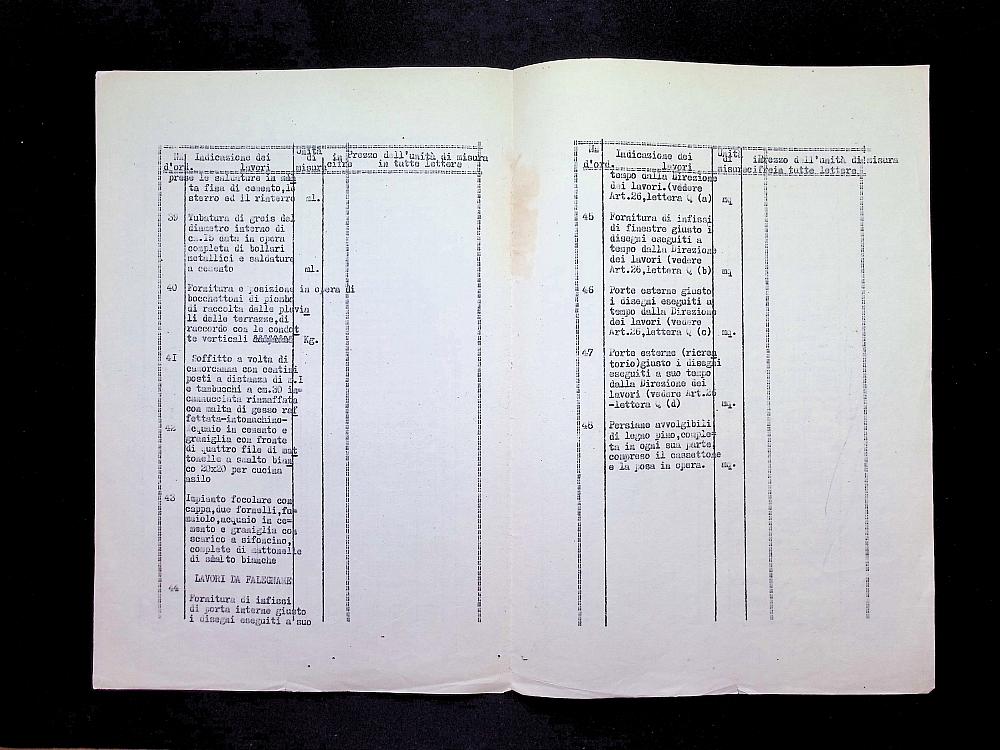 Nn Indicazione dei Unità Prezzo dell'unità di misura
d'ord. lavori di misura in cifre in tutte lettere
prese le saldature in mal
ta fina di cemento,lo
sterro ed il rinterro ml.
39 Tubatura di greis del
diametro interno di
cm.15 data in opera
completa di bollari
metallici e saldature
a cemento ml.
40 Fornitura e posizione in opera di
bocchettoni di piombo
di raccolta delle pluvia
li delle terrazze,di
raccordo con le condot
te verticali &&&&&&& Kg.
41 Soffitto a volta di
camorcanna con centini
posti a distanza di m.I
e tambucchi a cm.30 in=
cannucciata rinzaffata
con malta di gesso raf
fettata-intonachino-
42 acquaio in cemento e
graniglia con fronte
di quattro file di mat
tonelle a smalto bian
co 20x20 per cucina
asilo
43 Impianto focolare con
cappa,due fornelli,fu=
maiolo,acquaio in ce=
mento e graniglia con
scarico a sifoncino,
complete di mattonelle
di smalto bianche
LAVORI DA FALEGNAME
44
Fornitura di infissi
di porta interne giusto
i disegni eseguiti a suo
Nn Indicazione dei Unità Prezzo dell'unità di misura
d'ord. lavori di misura in cifre in tutte lettere.
tempo dalla Direzione
dei lavori.(vedere
Art.26,lettera Q (a) mq
45 Fornitura di infissi
di finestre giusto i
disegni eseguiti a
tempo dalla Direzione
dei lavori (vedere
Art.26,lettera Q (b) mq
46 Porte esterne giusto
i disegni eseguiti a
tempo dalla Direzione
dei lavori (vedere
Art.26,lettera Q (c) mq.
47 Porte esterne (ricrea
torio)giusto i disegni
eseguiti a suo tempo
dalla Direzione dei
lavori (vedere Art.26
-lettera Q (d) mq.
48 Persiane avvolgibili
di legno pino,comple=
ta in ogni sua parte
compreso il cassettone
e la posa in opera. mq.